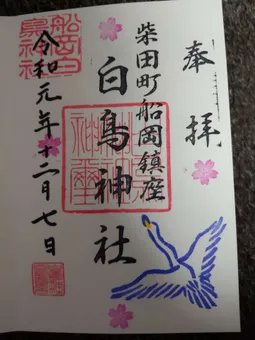 奉拝
柴田町船岡鎮座
白鳥神社
令和元年十二月七日
船岡白鳥神社